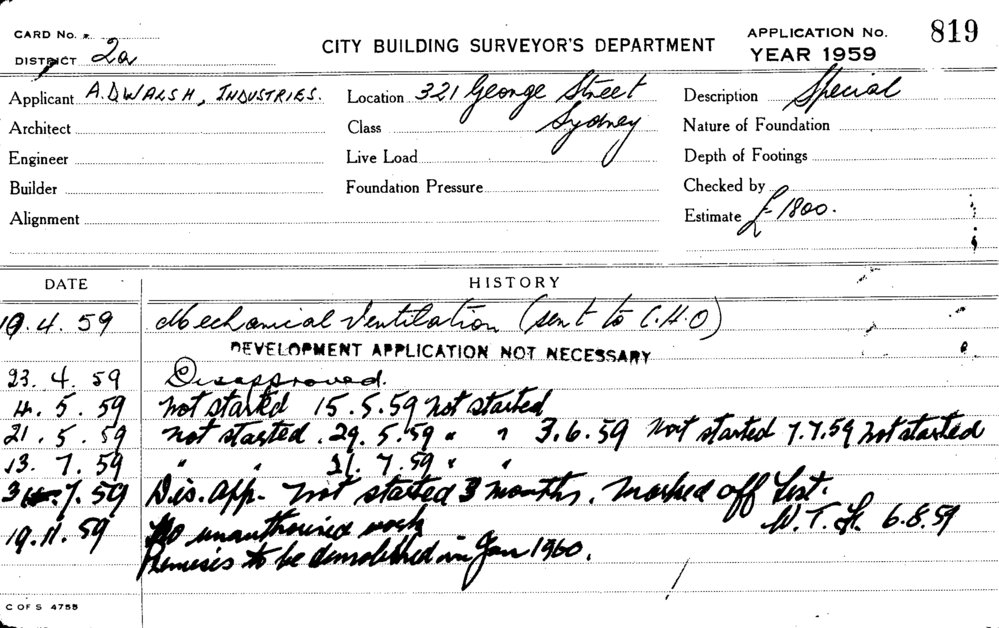 CARD No.
DISTRICT 2a
CITY BUILDING SURVEYOR'S DEPARTMENT
APPLICATION No. 819
YEAR 1959
Applicant A.D WALSH, INDUSTRIES. Location 321 George Street Description Special
Architect Class Sydney Nature of Foundation
Engineer Live Load Depth of Footings
Builder Foundation Pressure Checked by
Alignment Estimate £1800.
DATE HISTORY
10.4.59 Mechanical Ventilation (sent to C.H.O)
DEVELOPMENT APPLICATION NOT NECESSARY
23.4.59 Disapproved.
4.5.59 not started 15.5.59 not started
21.5.59 not started. 29.5.59 " " 3.6.59 not started 7.7.59 not started
13.7.59 " " 21.7.59 " "
7.59 Dis. App. not started 3 months. marked off List.
W.T.H. 6.8.59
19.11.59 No unauthorised work
Premises to be demolished in Jan 1960.
C OF S 4755